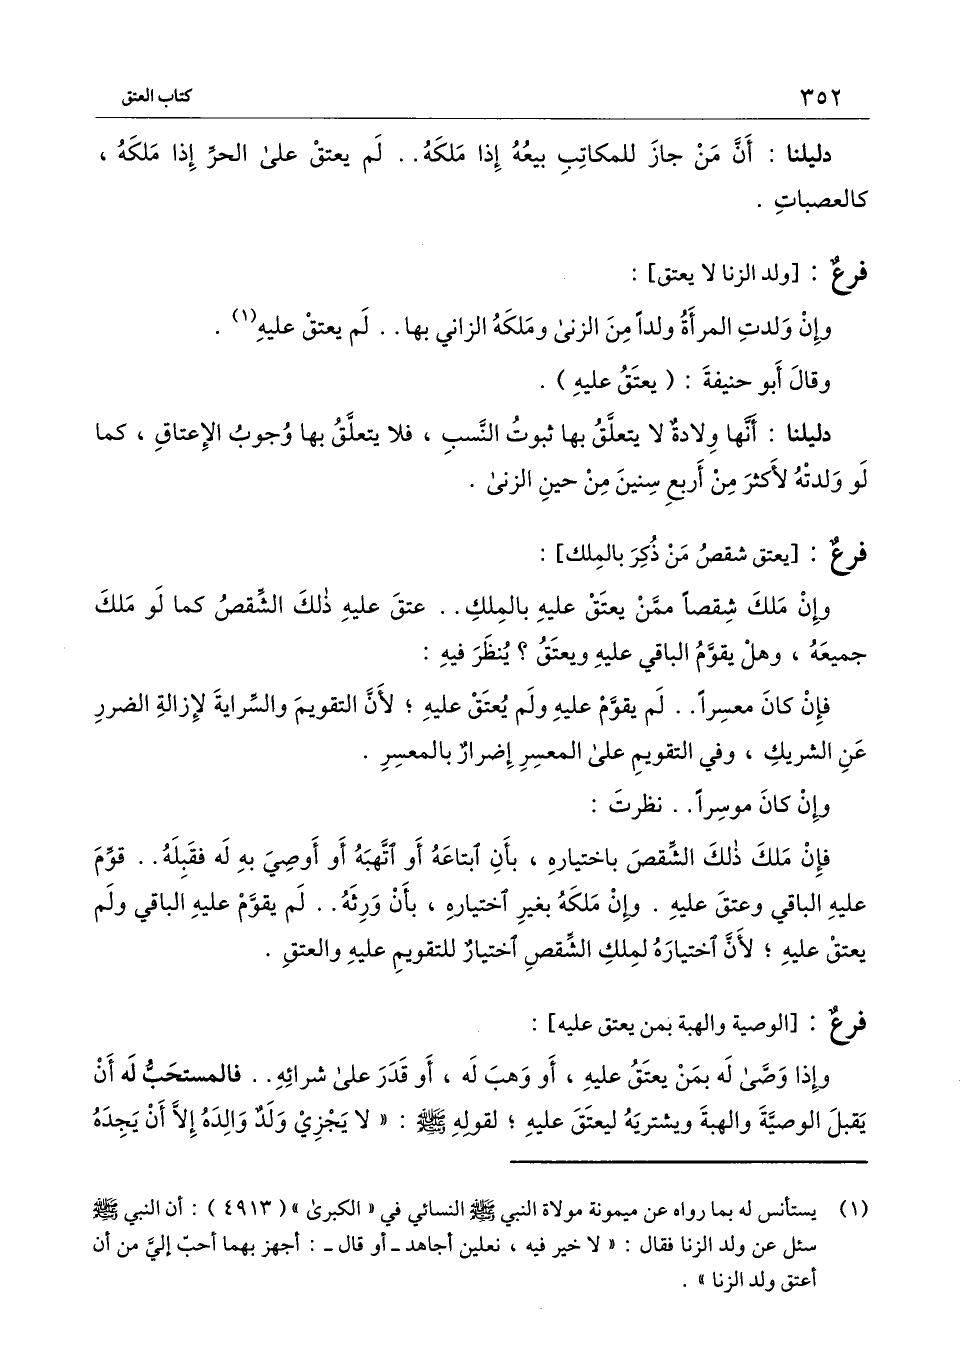 ٣٥٢ كتاب العتق
دليلنا : أَنَّ مَنْ جازَ للمكاتِبِ بيعُهُ إِذا مَلكَهُ . . لَم يعتقْ علىٰ الحرِّ إِذا مَلكَهُ ،
كالعصباتِ .
فرعٌ : [ولد الزنا لا يعتق] :
وإِنْ وَلدتِ المرأَةُ ولداً مِنَ الزنىٰ ومَلكَهُ الزاني بها . . لَم يعتقْ عليهِ(١) .
وقالَ أَبو حنيفةَ : ( يعتَقُ عليهِ ) .
دليلنا : أَنَّها وِلادةٌ لا يتعلَّقُ بها ثبوتُ النَّسبِ ، فلا يتعلَّقُ بها وُجوبُ الإِعتاقِ ، كما
لَو وَلدتْهُ لأَكثرَ مِنْ أَربعِ سِنينَ مِنْ حينِ الزنىٰ .
فرعٌ : [يعتق شقصُ مَنْ ذُكِرَ بالمِلك] :
وإِنْ مَلكَ شِقصاً ممَّنْ يعتَقْ عليهِ بالمِلكِ . . عتقَ عليهِ ذٰلكَ الشَّقصُ كما لَو مَلكَ
جميعَهُ ، وهلْ يقوَّمُ الباقي عليهِ ويعتَقُ ؟ يُنظَرَ فيهِ :
فإِنْ كانَ معسِراً . . لَم يقوَّمْ عليهِ ولَم يُعتَقْ عليهِ ؛ لأَنَّ التقويمَ والسِّرايةَ لإِزالةِ الضررِ
عَنِ الشريكِ ، وفي التقويمِ علىٰ المعسِرِ إِضرارٌ بالمعسِرِ .
وإِنْ كانَ موسِراً . . نظرتَ :
فإِنْ مَلكَ ذٰلكَ الشِّقصَ باختيارِهِ ، بأَنِ ٱبتاعَهُ أَو ٱتَّهبَهُ أَو أَوصِيَ بهِ لَه فقَبِلَهُ . . قوِّمَ
عليهِ الباقي وعتقَ عليهِ . وإِنْ مَلكَهُ بغيرِ ٱختيارِهِ ، بأَنْ وَرِثَهُ . . لَم يقوَّمْ عليهِ الباقي ولَم
يعتقْ عليهِ ؛ لأَنَّ ٱختيارَهُ لمِلكِ الشِّقصِ ٱختيارٌ للتقويمِ عليهِ والعتقِ .
فرعٌ : [الوصية والهبة بمن يعتق عليه] :
وإِذا وَصَّىٰ لَه بمَنْ يعتَقُ عليهِ ، أَو وَهبَ لَه ، أَو قَدَرَ علىٰ شرائِهِ . . فالمستحَبُّ لَه أَنْ
يَقبلَ الوصيَّةَ والهبةَ ويشتريَهُ ليعتَقَ عليهِ ؛ لقولِهِ ﷺ : « لاَ يَجْزِيْ وَلَدٌ وَالِدَهُ إِلاَّ أَنْ يَجِدَهُ
(١) يستأنس له بما رواه عن ميمونة مولاة النبي ﷺ النسائي في « الكبرىٰ » ( ٤٩١٣ ) : أن النبي ﷺ
سئل عن ولد الزنا فقال : « لا خير فيه ، نعلين أجاهد ـ أو قال ـ : أجهز بهما أحبّ إليَّ من أن
أعتق ولد الزنا » .